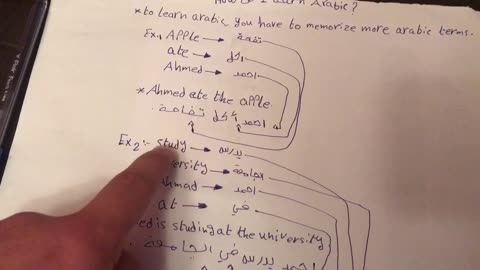 How do I Learn Arabic?
*to learn arabic, you have to memorize more arabic terms.
Ex1 APPle → تفاحة
ate → اكل
Ahmed → احمد
* Ahmed ate the apple
احمد اكل تفاحة .
Ex2:- study → يدرس
versity → الجامعة
hmad → احمد
at → في
ed is studing at the university
احمد يدرس في الجامعة .